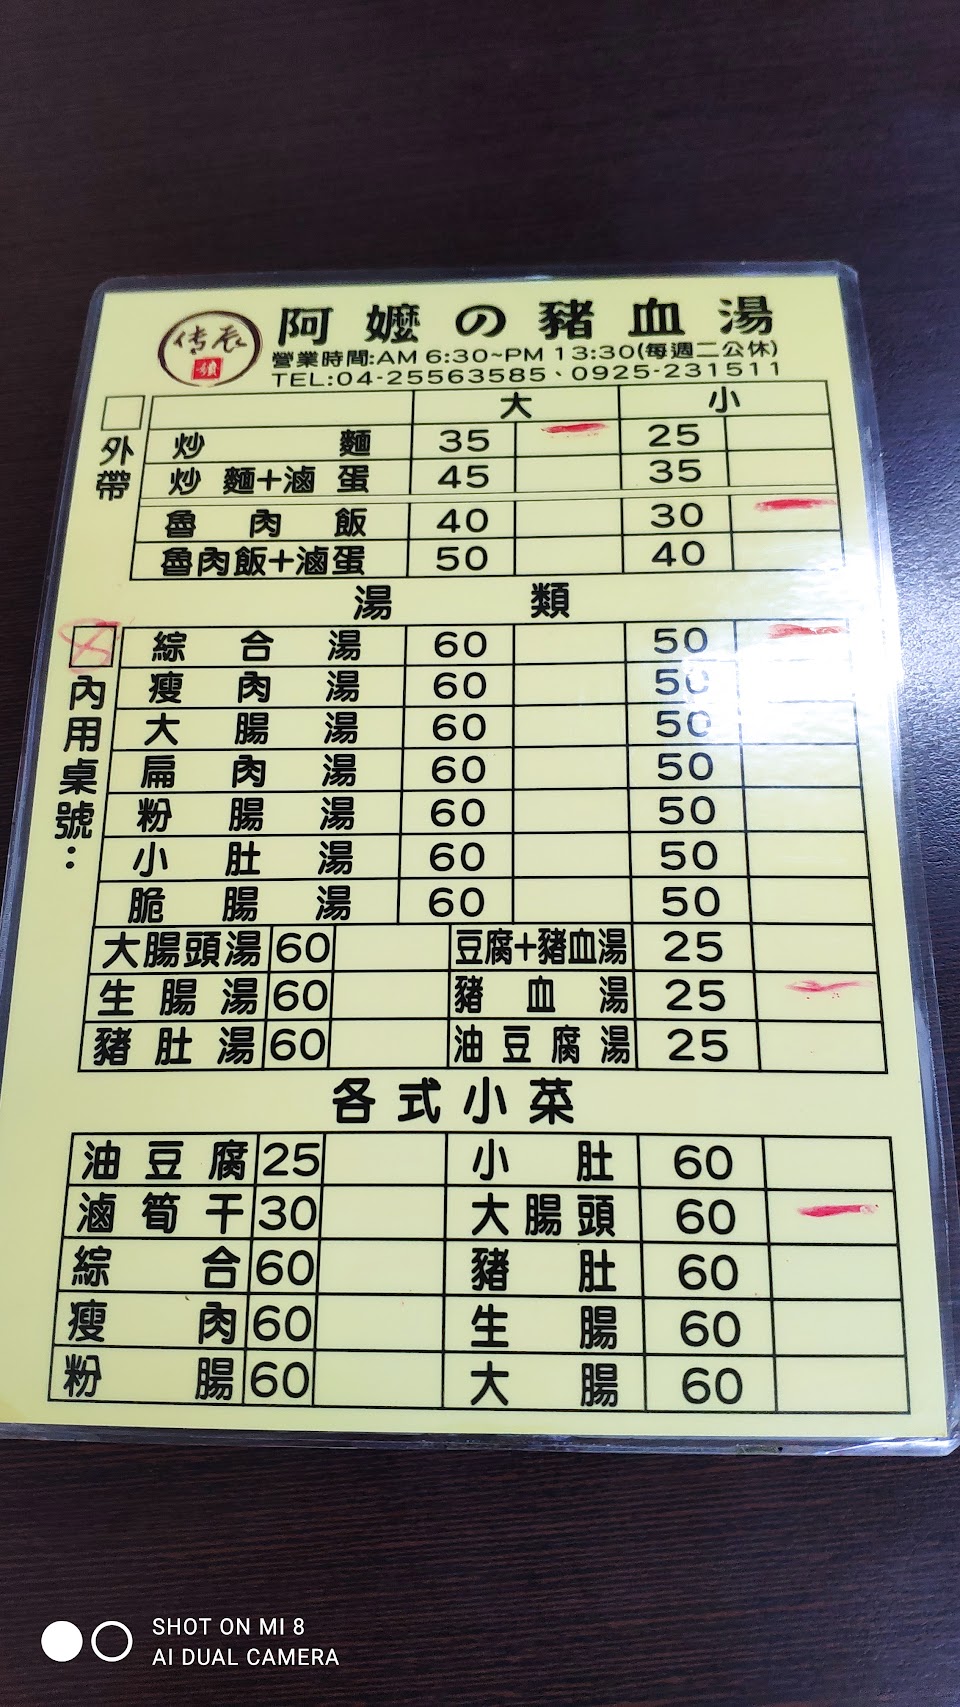 傳承
阿嬤の豬血湯
營業時間:AM 6:30~PM 13:30(每週二公休)
TEL:04-25563585、0925-231511
外帶
大 小
炒麵 35 25
炒麵+滷蛋 45 35
魯肉飯 40 30
魯肉飯+滷蛋 50 40
湯類
內用桌號:
綜合湯 60 50
瘦肉湯 60 50
大腸湯 60 50
扁肉湯 60 50
粉腸湯 60 50
小肚湯 60 50
脆腸湯 60 50
大腸頭湯 60 豆腐+豬血湯 25
生腸湯 60 豬血湯 25
豬肚湯 60 油豆腐湯 25
各式小菜
油豆腐 25 小肚 60
滷筍干 30 大腸頭 60
綜合 60 豬肚 60
瘦肉 60 生腸 60
粉腸 60 大腸 60
SHOT ON MI 8
AI DUAL CAMERA